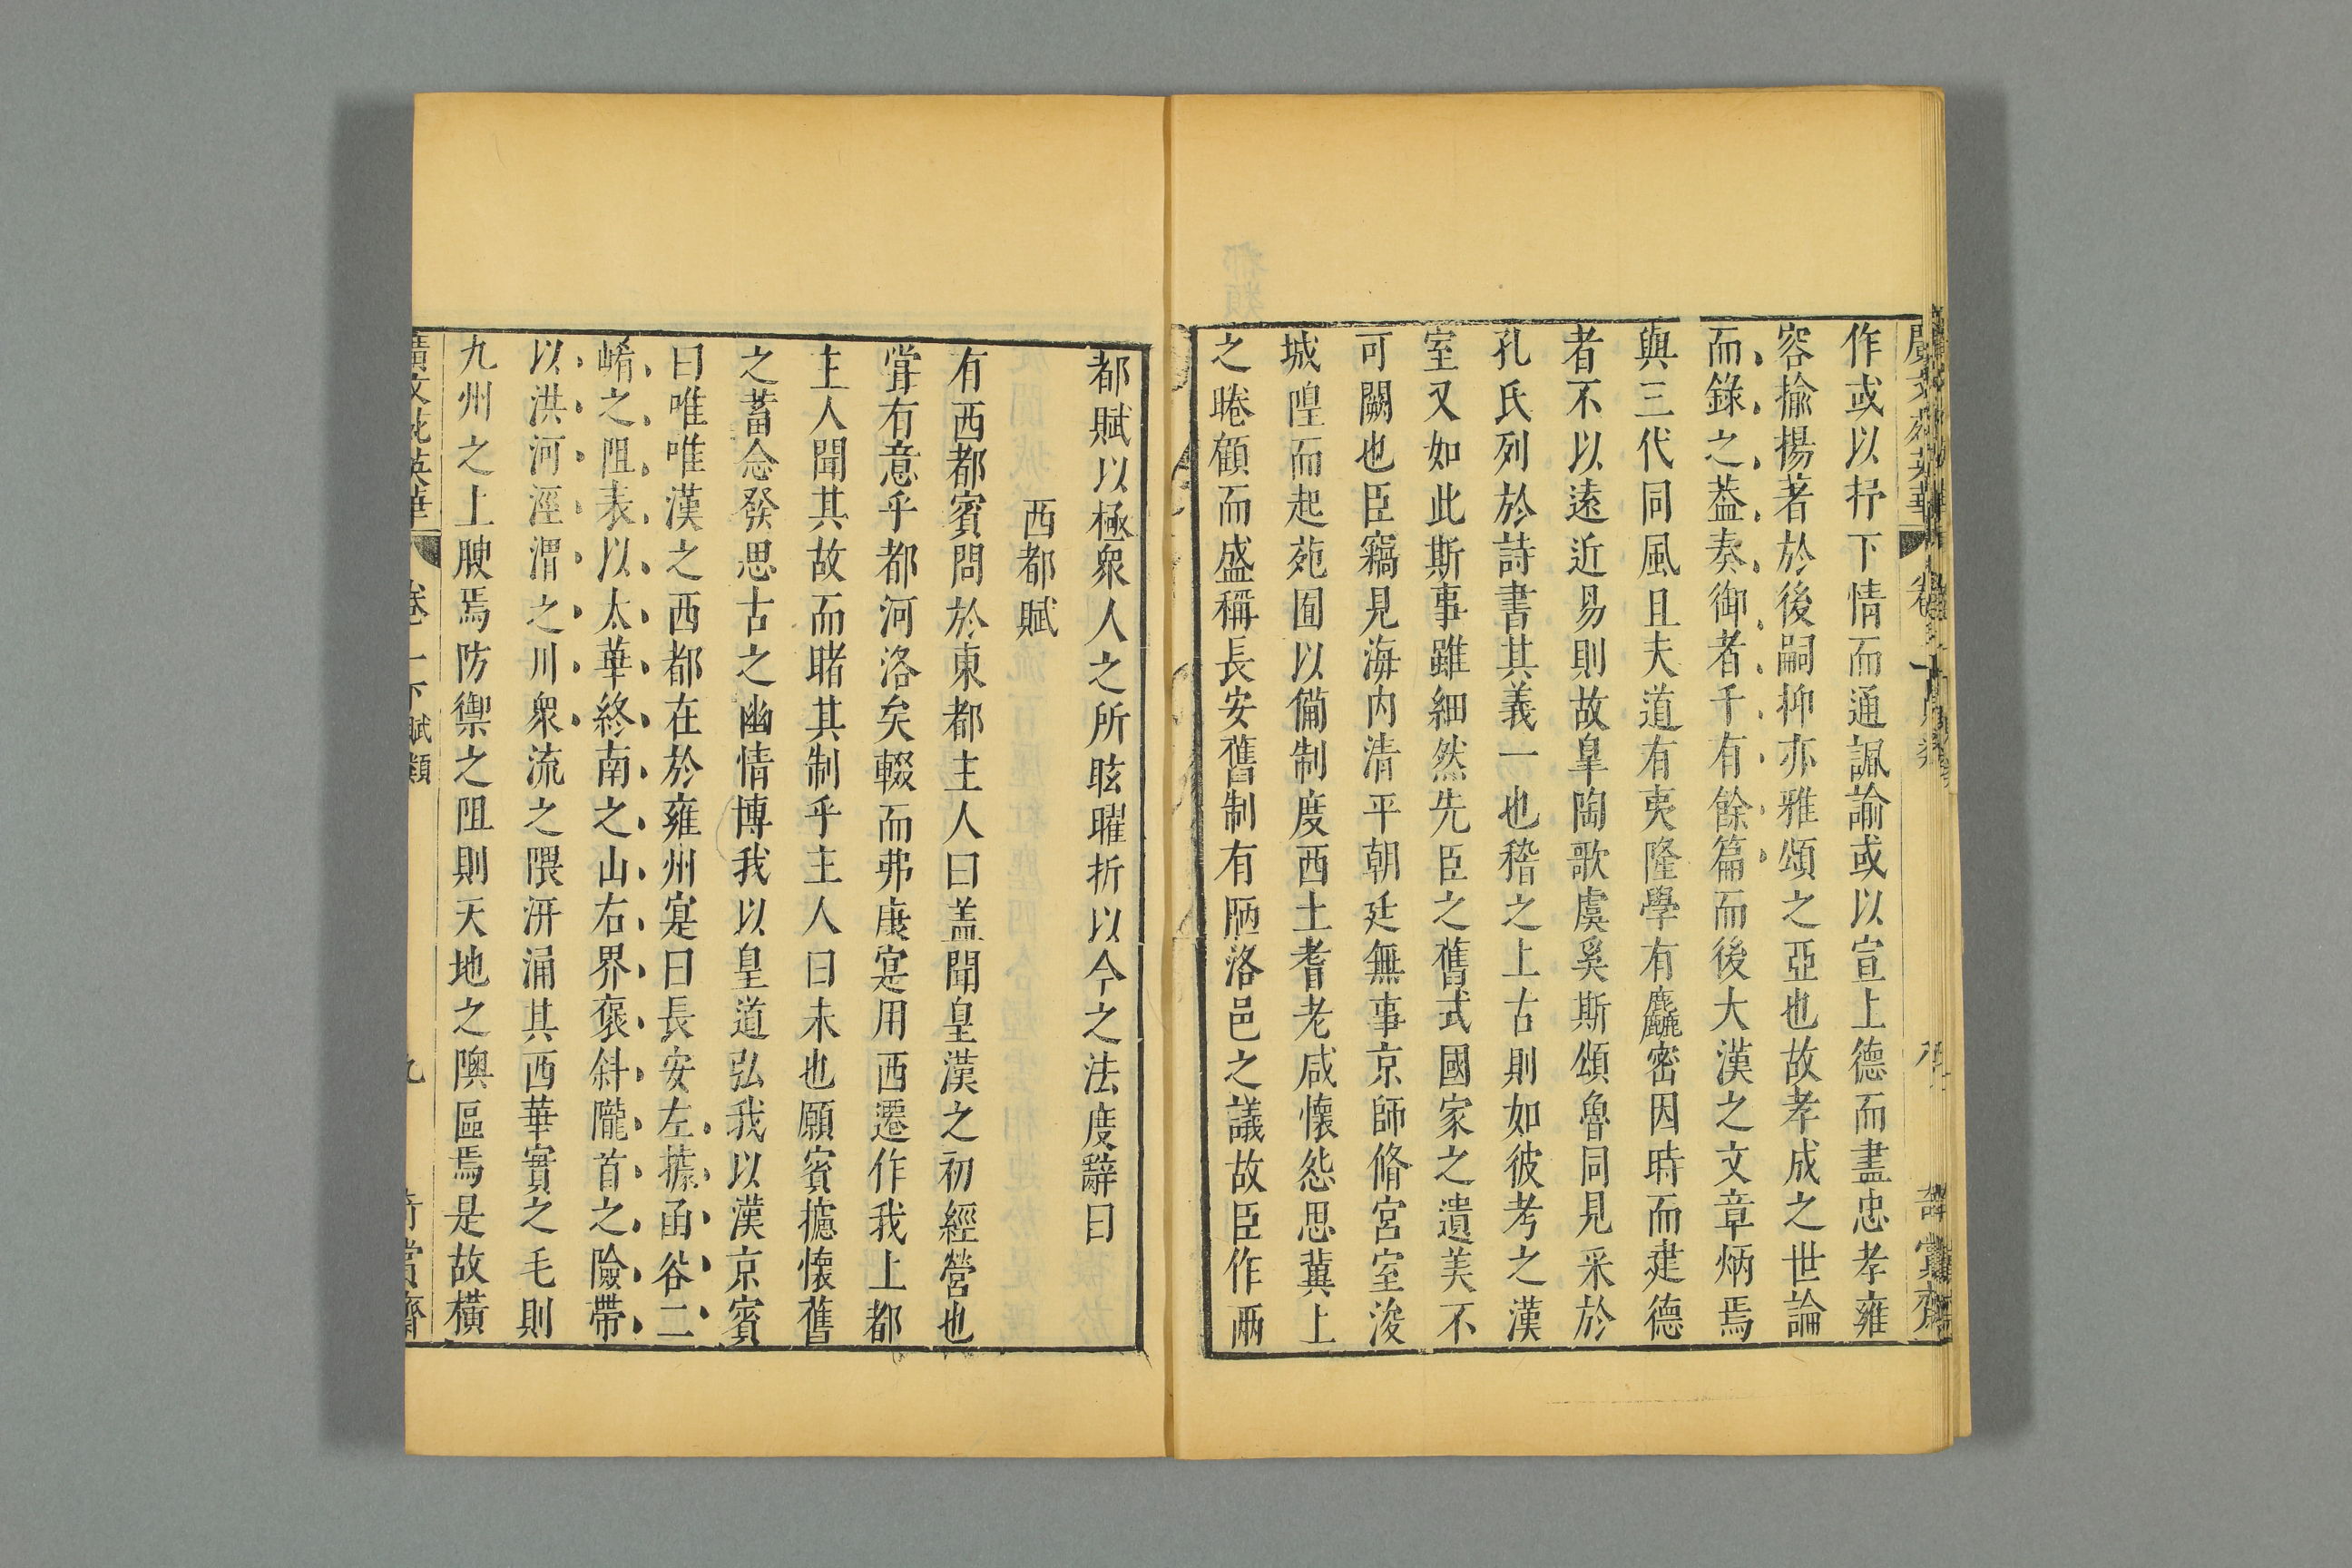 作或以抒下情而通諷諭或以宣上德而盡忠孝雍
容揄揚著於後嗣抑亦雅頌之亞也故孝成之世論
而錄之葢奏御者千有餘篇而後大漢之文章炳焉
與三代同風且夫道有夷隆學有麤密因時而建德
者不以遠近易則故臯陶歌虞奚斯頌魯同見采於
孔氏列於詩書其義一也稽之上古則如彼考之漢
室又如此斯事雖細然先臣之舊式國家之遺美不
可闕也臣竊見海内清平朝廷無事京師脩宮室浚
城隍而起苑囿以備制度西土耆老咸懷怨思冀上
之睠顧而盛稱長安舊制有陋洛邑之議故臣作兩
都賦以極衆人之所眩曜折以今之法度辭曰
西都賦
有西都賓問於東都主人曰盖聞皇漢之初經營也
嘗有意乎都河洛矣輟而弗康寔用西遷作我上都
主人聞其故而睹其制乎主人曰未也願賓攄懷舊
之蓄念發思古之幽情博我以皇道弘我以漢京賓
曰唯唯漢之西都在於雍州寔曰長安左據函谷二
崤之阻表以太華終南之山右界褒斜隴首之險帶
以洪河涇渭之川衆流之隈汧涌其西華實之毛則
九州之上腴焉防禦之阻則天地之隩區焉是故橫
廣文苑英華 卷一下賦類 九 奇賞齋